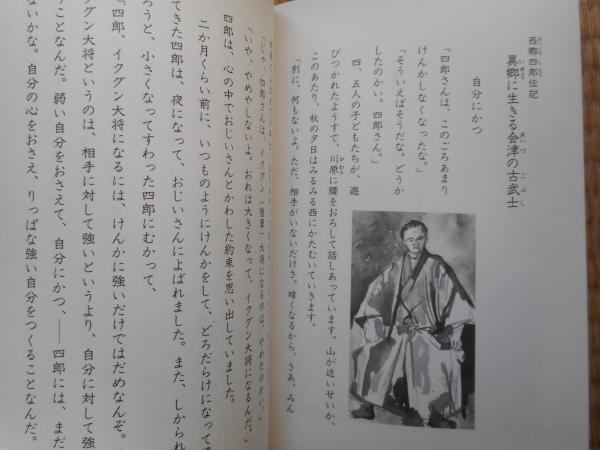 西郷四郎伝記
異郷に生きる会津の古武士
いきょう
あいづ
こぶし
自分にかつ
「四郎さんは、このごろあまり
けんかしなくなったな。」
「そういえばそうだな。どうか
したのかい。四郎さん。」
四、五人の子どもたちが、遊
びつかれたようすで、川原に腰をおろして話しあっています。山が近いせいか、
かわら
このあたり、秋の夕日はみるみる西にかたむいていきます。
「別に、何もないよ。ただ、相手がいないだけさ。暗くなるから、さあ、みん
「じゃ、四郎さんは、イクグン(陸軍)大将になるのは、やめたのかい。」
「いや、やめやしないよ。おれは大きくなって、イクグン大将になるんだ。」
四郎は、心の中でおじいさんとかわした約束を思い出していました。
二か月くらい前に、いつものようにけんかをして、どろだらけになって
てきた四郎は、夜になって、おじいさんによばれました。また、しかられ
ろうと、小さくなってすわった四郎にむかって、
「四郎、イクグン大将になるには、けんかに強いだけではだめなんぞ。
グン大将というのは、相手に対して強いというより、自分に対して強
うことなんだ。弱い自分をおさえて、自分にかつ、――四郎には、まだ
ないかな。自分の心をおさえ、りっぱな強い自分をつくることなんだ。